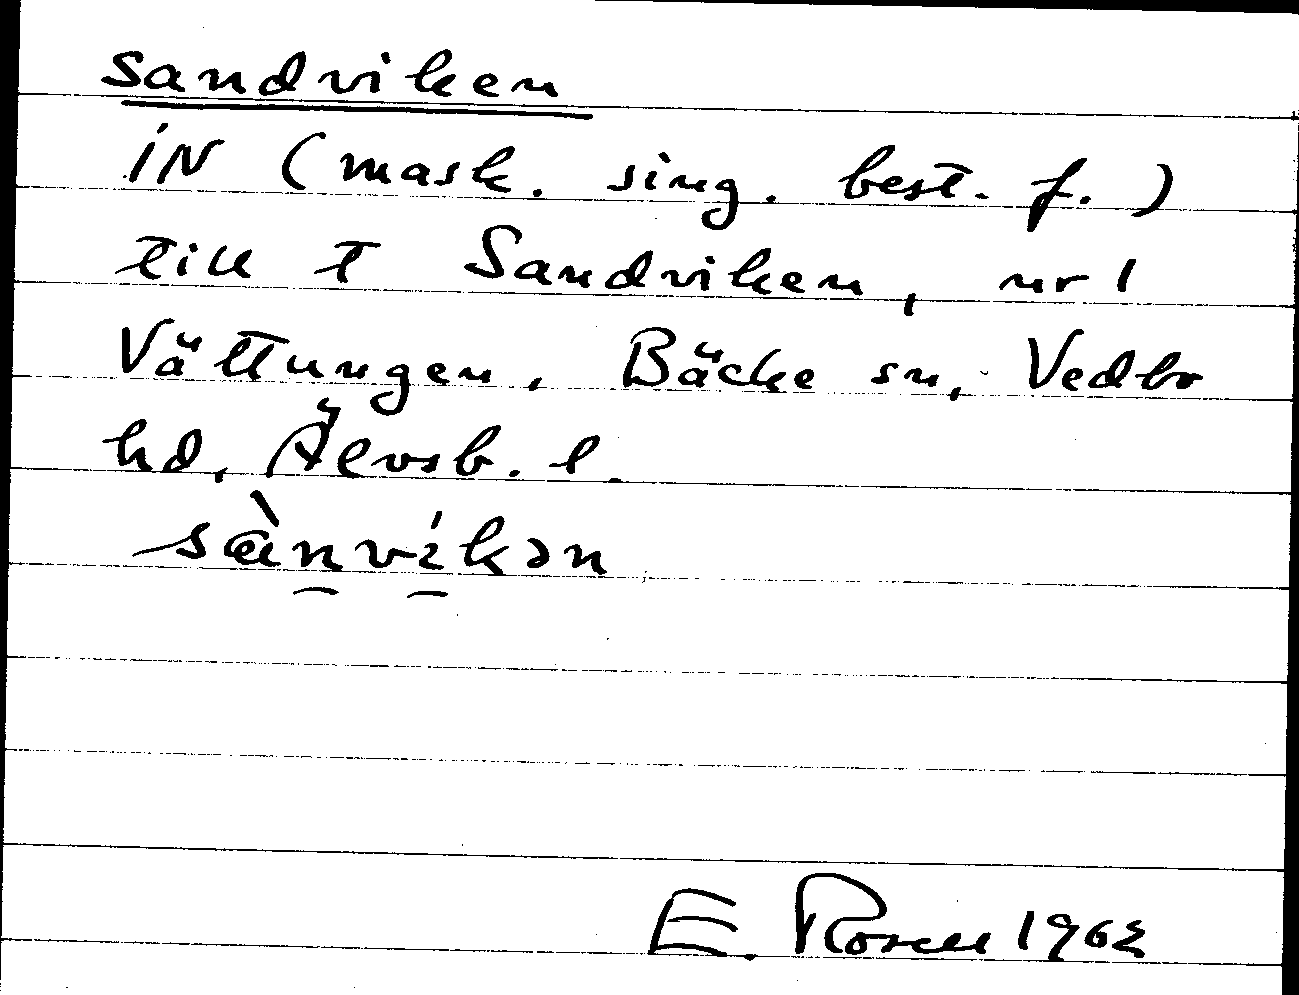 sandviken
iN (mask. sing. best. f.)
till T Sandviken, nr 1
Vättungen, Bäcke sn, Vedbo
hd, Älvsb. l.
sànvíkən
E. Rosell 1962